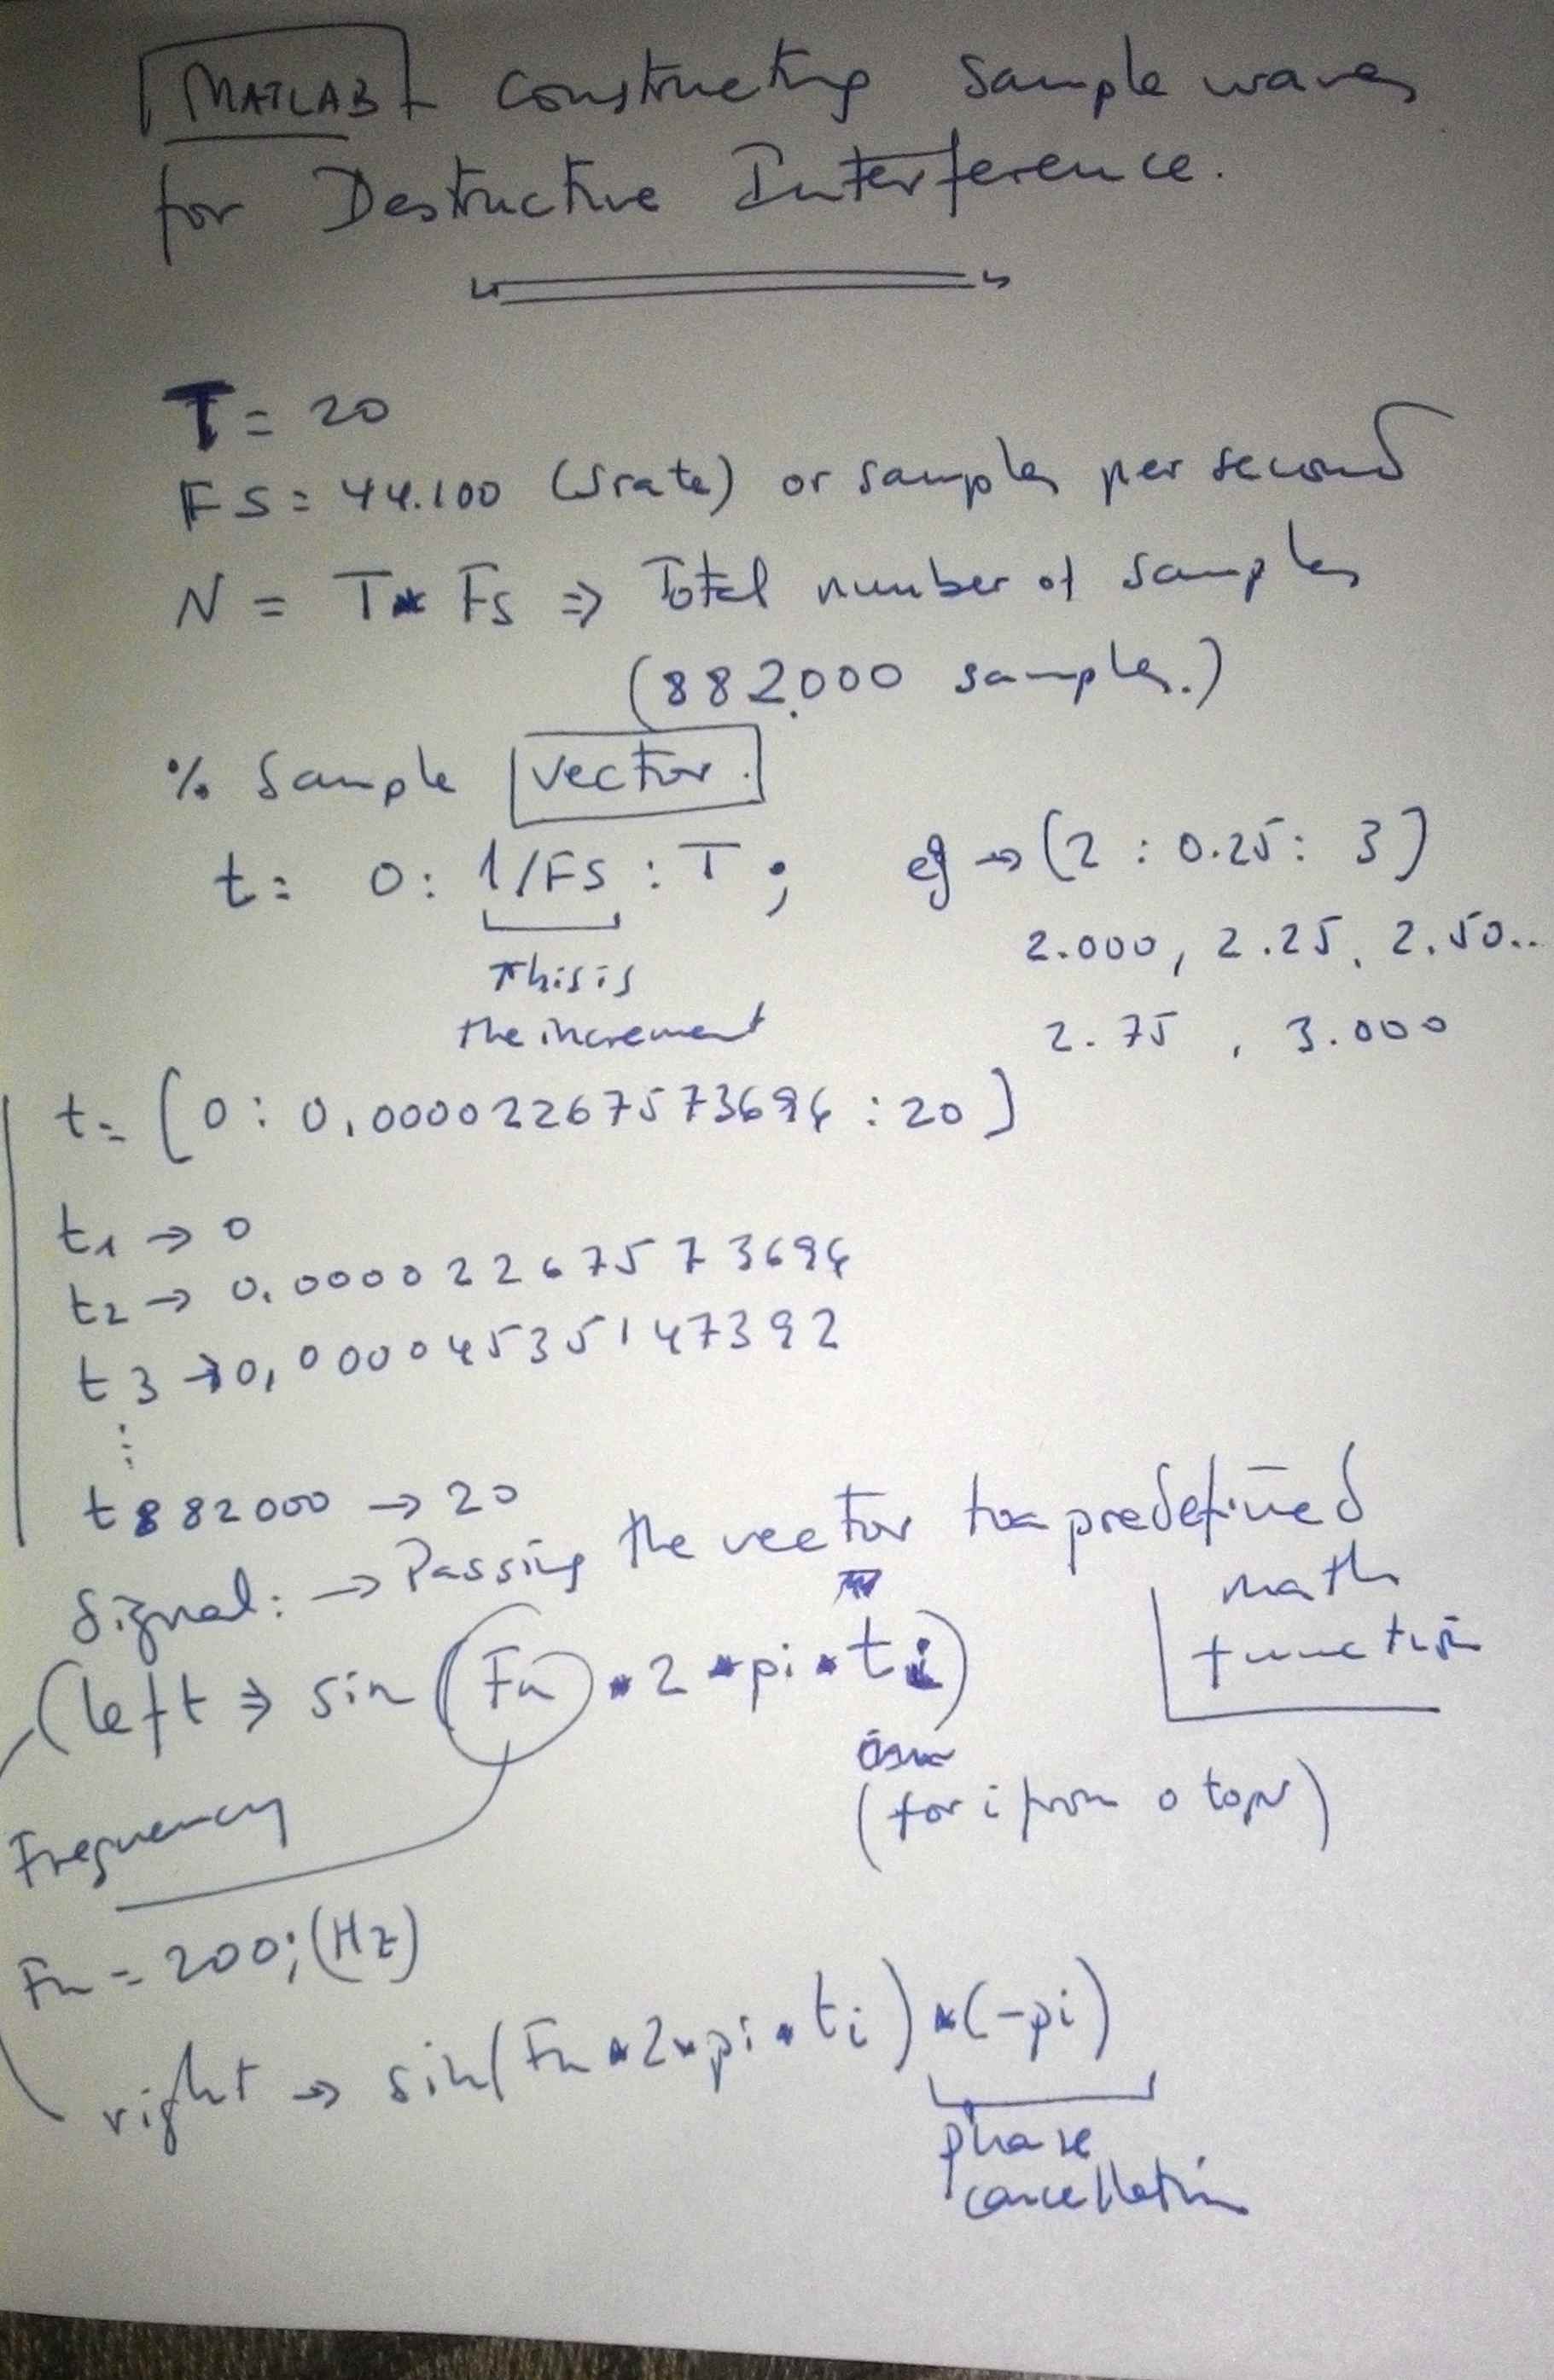 MATLAB constructing sample waves
for Destructive Interference.
T = 20
FS = 44.100 (srate) or samples per second
N = T * Fs ⇒ Total number of samples
(882.000 samples.)
% Sample vector.
t = 0 : 1/FS : T ; eg → (2 : 0.25 : 3)
2.000, 2.25, 2.50..
This is
the increment
2.75 , 3.000
t = [0 : 0,0000226757369 : 20]
t1 → 0
t2 → 0,0000226757369
t3 → 0,00004535147392
⋮
t882000 → 20
Signal: → Passing the vector to a predefined
math
function
(left ⇒ sin(Fn * 2 * pi * ti)
(for i from 0 to N)
Frequency
Fn = 200; (Hz)
right → sin(Fn * 2 * pi * ti) * (-pi)
phase
cancellation